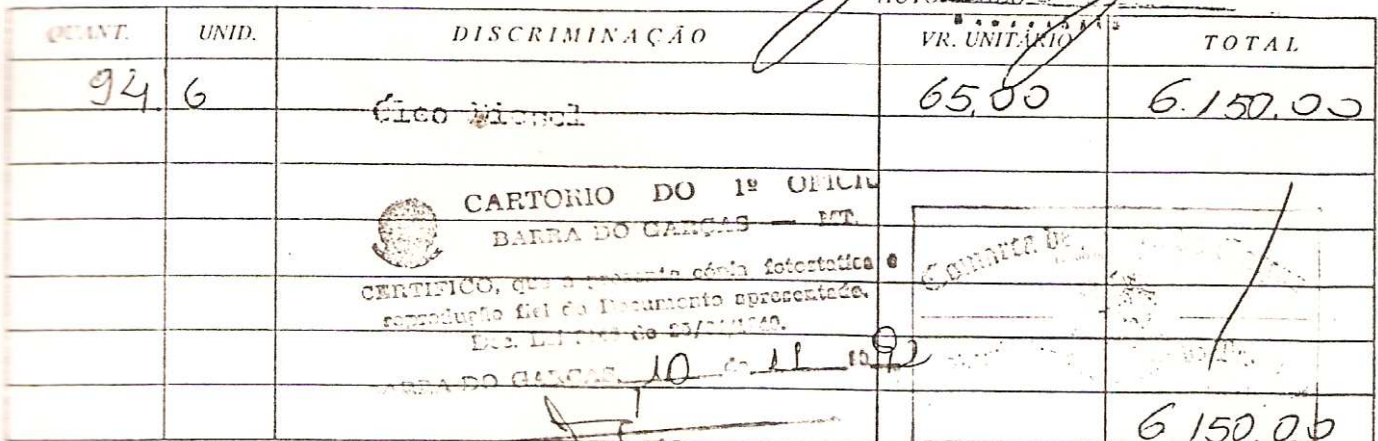 QUANT. UNID. DISCRIMINAÇÃO VR. UNITÁRIO TOTAL
94,6 Óleo Diesel 65,00 6.150,00
CARTORIO DO 1º OFICIO
BARRA DO GARÇAS — MT.
CERTIFICO, que a presente cópia fotostatica é
reprodução fiel do Documento apresentado.
Dec. Lei de
BARRA DO GARÇAS, 10 de 11 19
Comarca
6.150,00